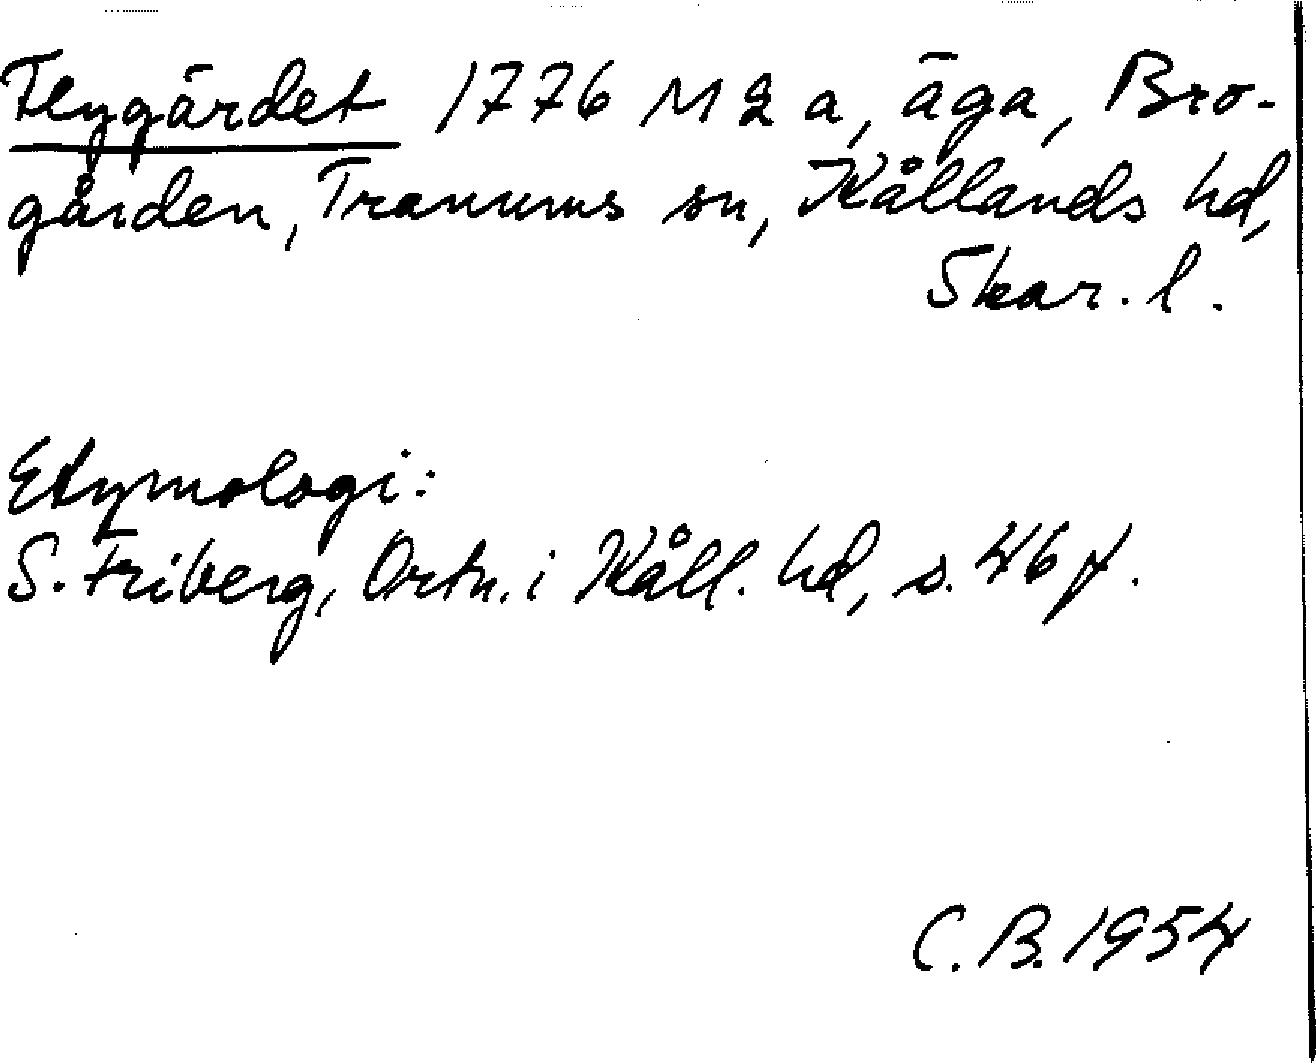 Flygärdet 1776 M 2 a, äga, Bro-
gården, Tranums sn, Kållands hd,
Skar. l.
Etymologi:
S. Friberg, Ortn. i Kåll. hd, s. 46 f.
C. B. 1954